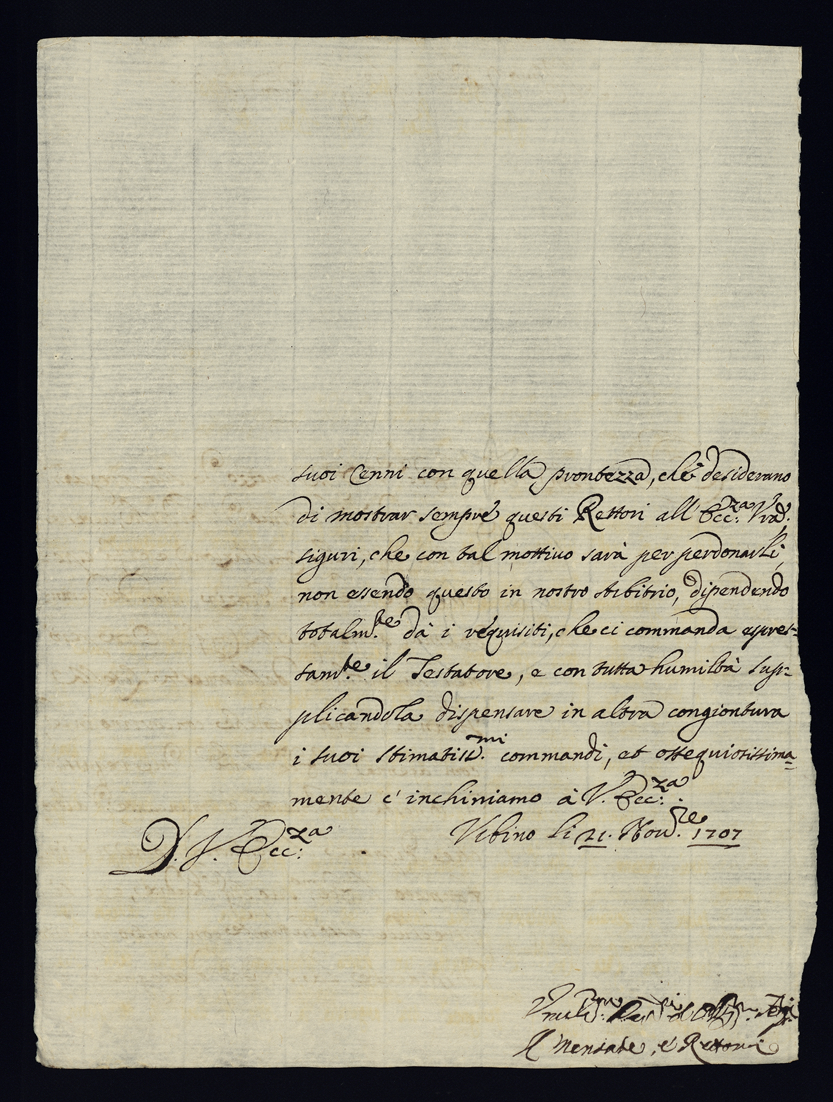 suoi Cenni con quella prontezza, che desiderano
di mostrar sempre questi Rettori all Ecc:za Vra.
siguri, che con tal mottiuo sarà per perdonarli,
non esendo questo in nostro Arbitrio, dipendendo
totalm.te dà i requisiti, che ci commanda espres=
sam.te il Testatore, e con tutta humiltà sup=
plicandola dispensare in altra congiontura
i suoi stimatiss.mi commandi, et ossequiosissima=
mente c'inchiniamo à V. Ecc:za
D. V. Ecc:za
Vrbino li 21. Nou.re 1707
Il Mensale, e Rettori